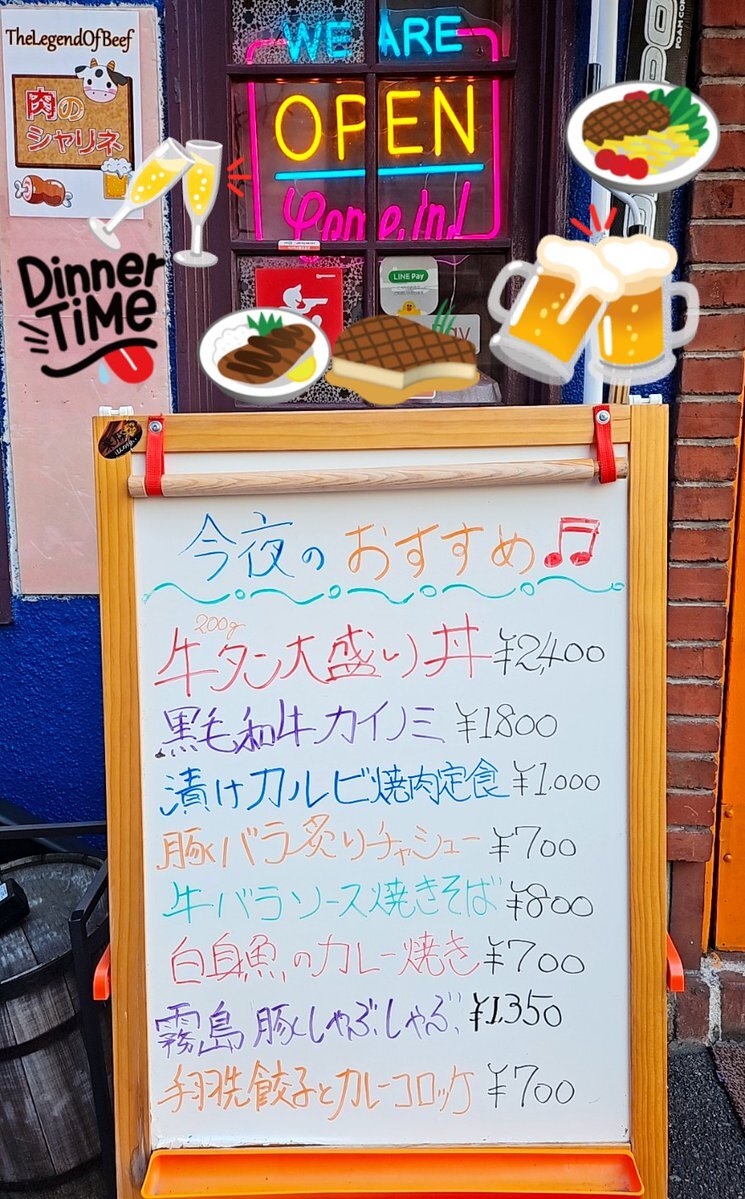 TheLegendOfBeef
肉の
シャリネ
WE ARE
OPEN
Come in!
Dinner
TiME
LINE Pay
今夜のおすすめ
200g
牛タン大盛り丼 ¥2,400
黒毛和牛カイノミ ¥1800
漬けカルビ焼肉定食 ¥1,000
豚バラ炙りチャーシュー ¥700
牛バラソース焼きそば ¥800
白身魚のカレー焼き ¥700
霧島豚しゃぶしゃぶ ¥1,350
手羽先餃子とカレーコロッケ ¥700